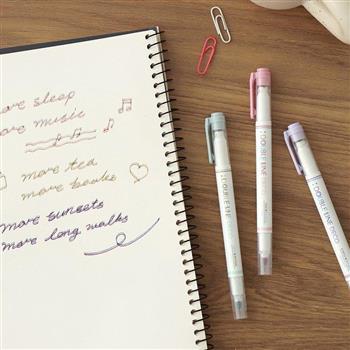 more sleep
more music
more tea
more books
more sunsets
more long walks
DOUBLE LINE
DOUBLE LINE
DOUBLE LINE DECO